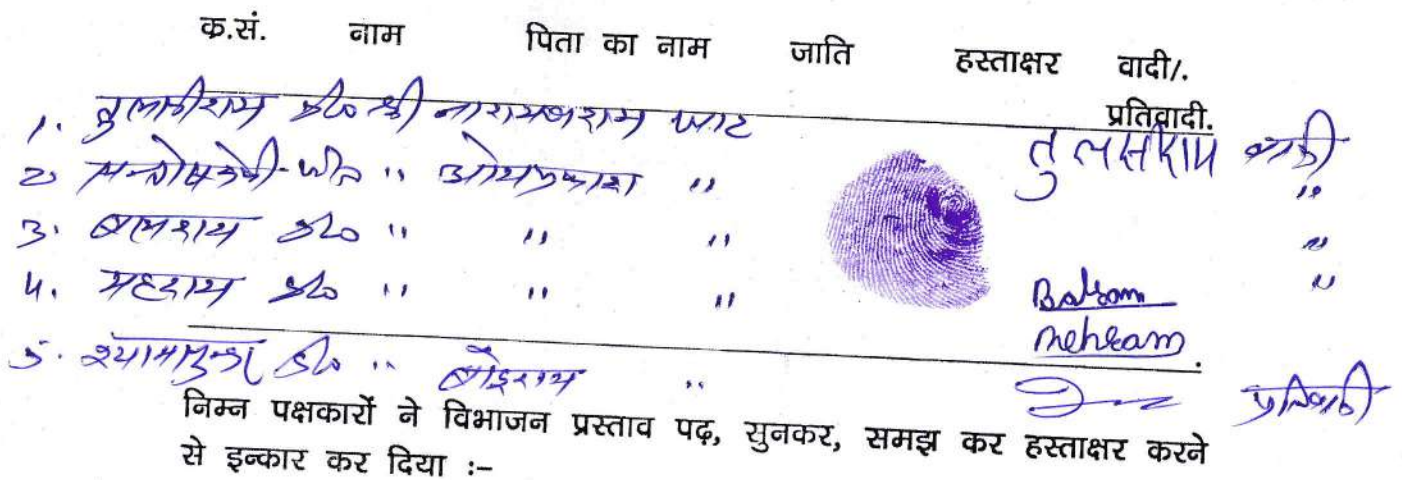 क.सं. नाम पिता का नाम जाति हस्ताक्षर वादी/.
प्रतिवादी.
1. तुलसीराम S/o श्री नारायणराम जाट तुलसीराम वादी
2 सन्तोषदेवी " ओमप्रकाश " "
3. बलराम S/o " " " "
4. महराम S/o " " " Balram "
Mehram
5. श्यामसुन्दर S/o " " प्रतिवादी
निम्न पक्षकारों ने विभाजन प्रस्ताव पढ़, सुनकर, समझ कर हस्ताक्षर करने
से इन्कार कर दिया :-